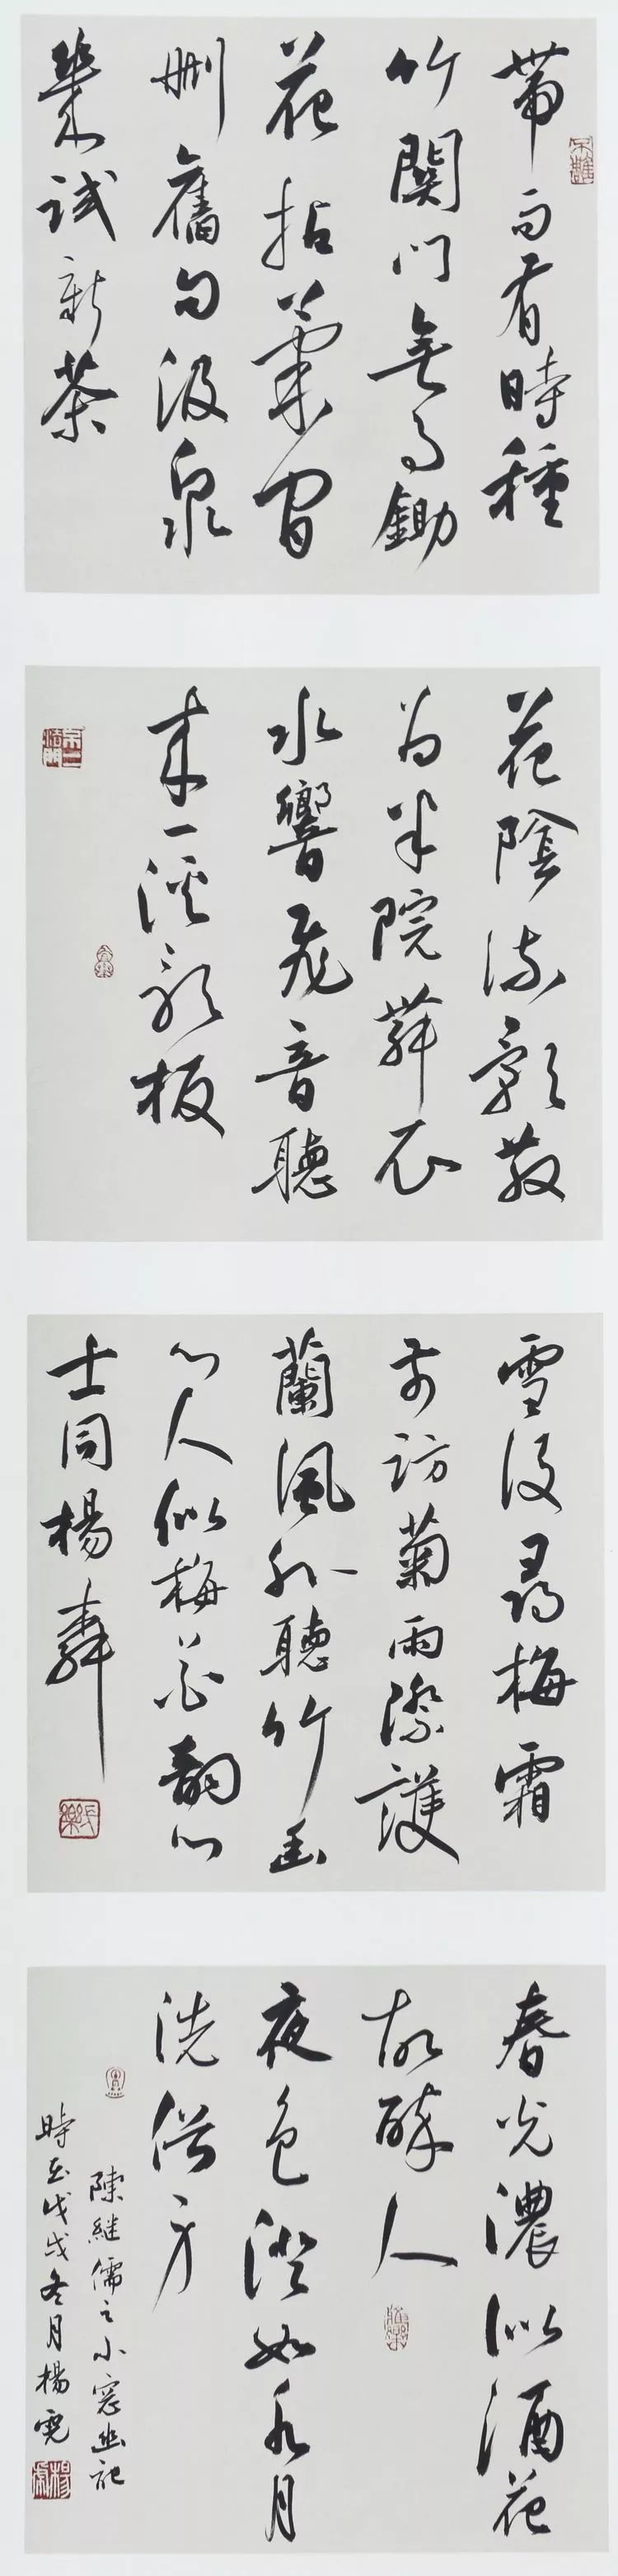 帶雨看時種
竹關門無事鋤
花拈筆閒
刪舊句汲泉
幾試新茶
花陰流影散
為半院舞衣
水響飛音聽
來一溪歌板
雪後尋梅霜
前訪菊雨際護
蘭風外聽竹幽
心人似梅花韻心
士同楊
春光濃似酒花
故醉人
夜色澄如水月
洗俗方
陳繼儒之小窗幽記
時在戊戌冬月楊